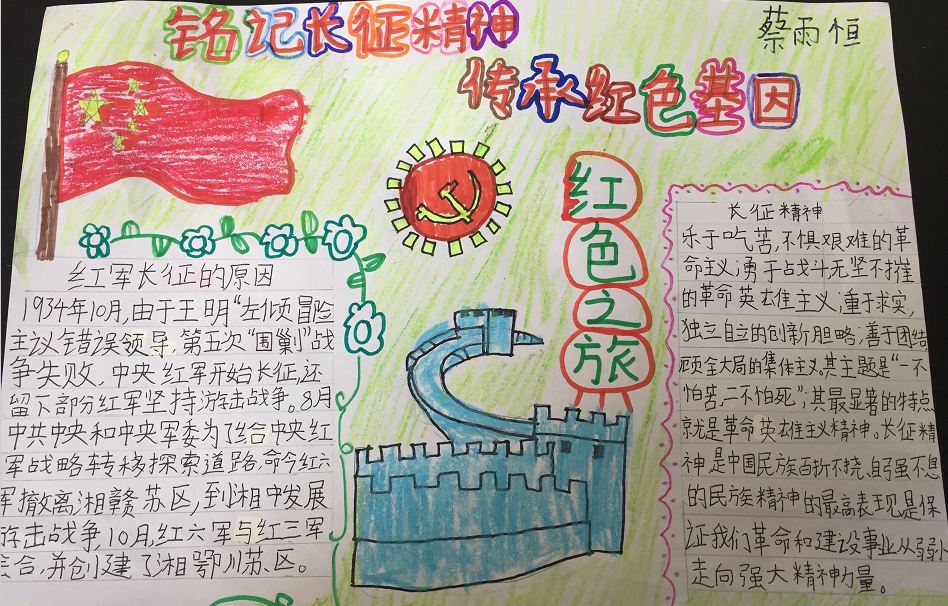 铭记长征精神
蔡雨恒
传承红色基因
红色之旅
红军长征的原因
1934年10月,由于王明“左倾冒险
主义错误领导,第五次“围剿”战
争失败,中央红军开始长征,还
留下部分红军坚持游击战争。8月
中共中央和中央军委为了结合中央红
军战略转移探索道路,命令红六
军撤离湘赣苏区,到湘中发展
游击战争10月,红六军与红三军
会合,并创建了湘鄂川苏区。
长征精神
乐于吃苦,不惧艰难的革
命主义;勇于战斗无坚不摧
的革命英雄主义;重于求实,
独立自立的创新胆略;善于团结
顾全大局的集体主义。其主题是“一不
怕苦,二不怕死”;其最显著的特点
就是革命英雄主义精神。长征精
神是中国民族百折不挠,自强不息
的民族精神的最高表现是保
证我们革命和建设事业从弱小
走向强大精神力量。